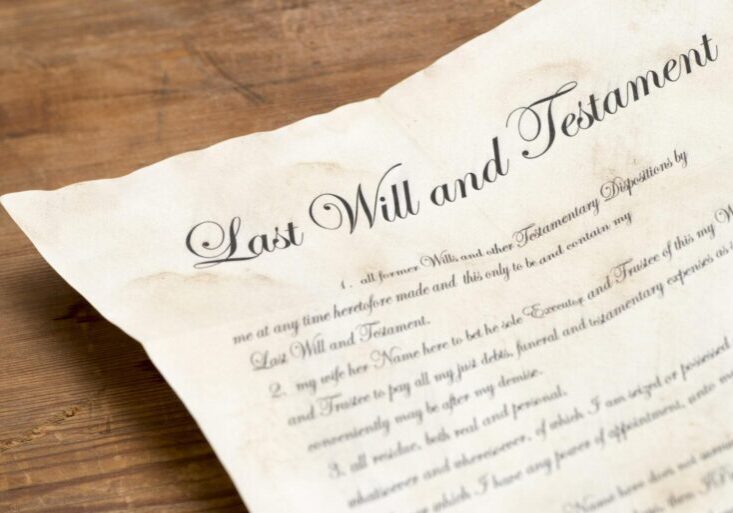 Last Will and Testament
1. all former Wills and other Testamentary Dispositions by
me at any time heretofore made and this only to be and contain my
Last Will and Testament.
2. my wife her Name here to bet he sole Executor and Trustee of this my W
and Trustee to pay all my just debts, funeral and testamentary expenses as
conveniently may be after my demise.
3. all residue, both real and personal,
whatsoever and wheresoever, of which I am seized or possessed
which I have any power of appointment, unto
Name here does not
then